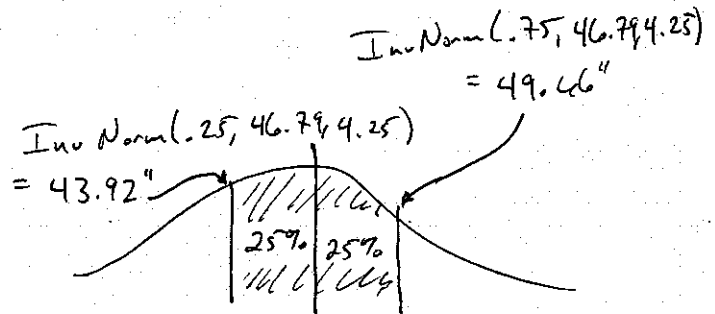 InvNorm(.75, 46.79, 4.25)
= 49.66"
InvNorm(.25, 46.79, 4.25)
= 43.92"
25% 25%